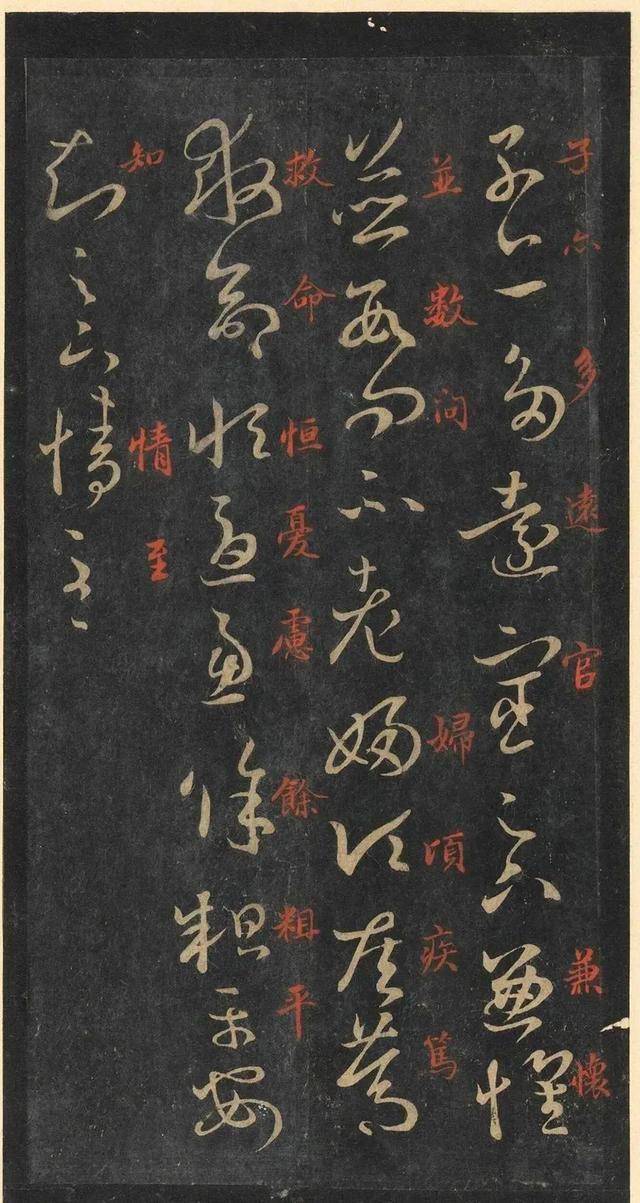 子亦多遠官兼懷
子亦多遠宦足下兼懷
並數问婦頃疾篤
並數問不老婦頃疾篤
救命恒憂慮餘粗平
救命恒憂慮餘粗平安
知情至
知足下情至